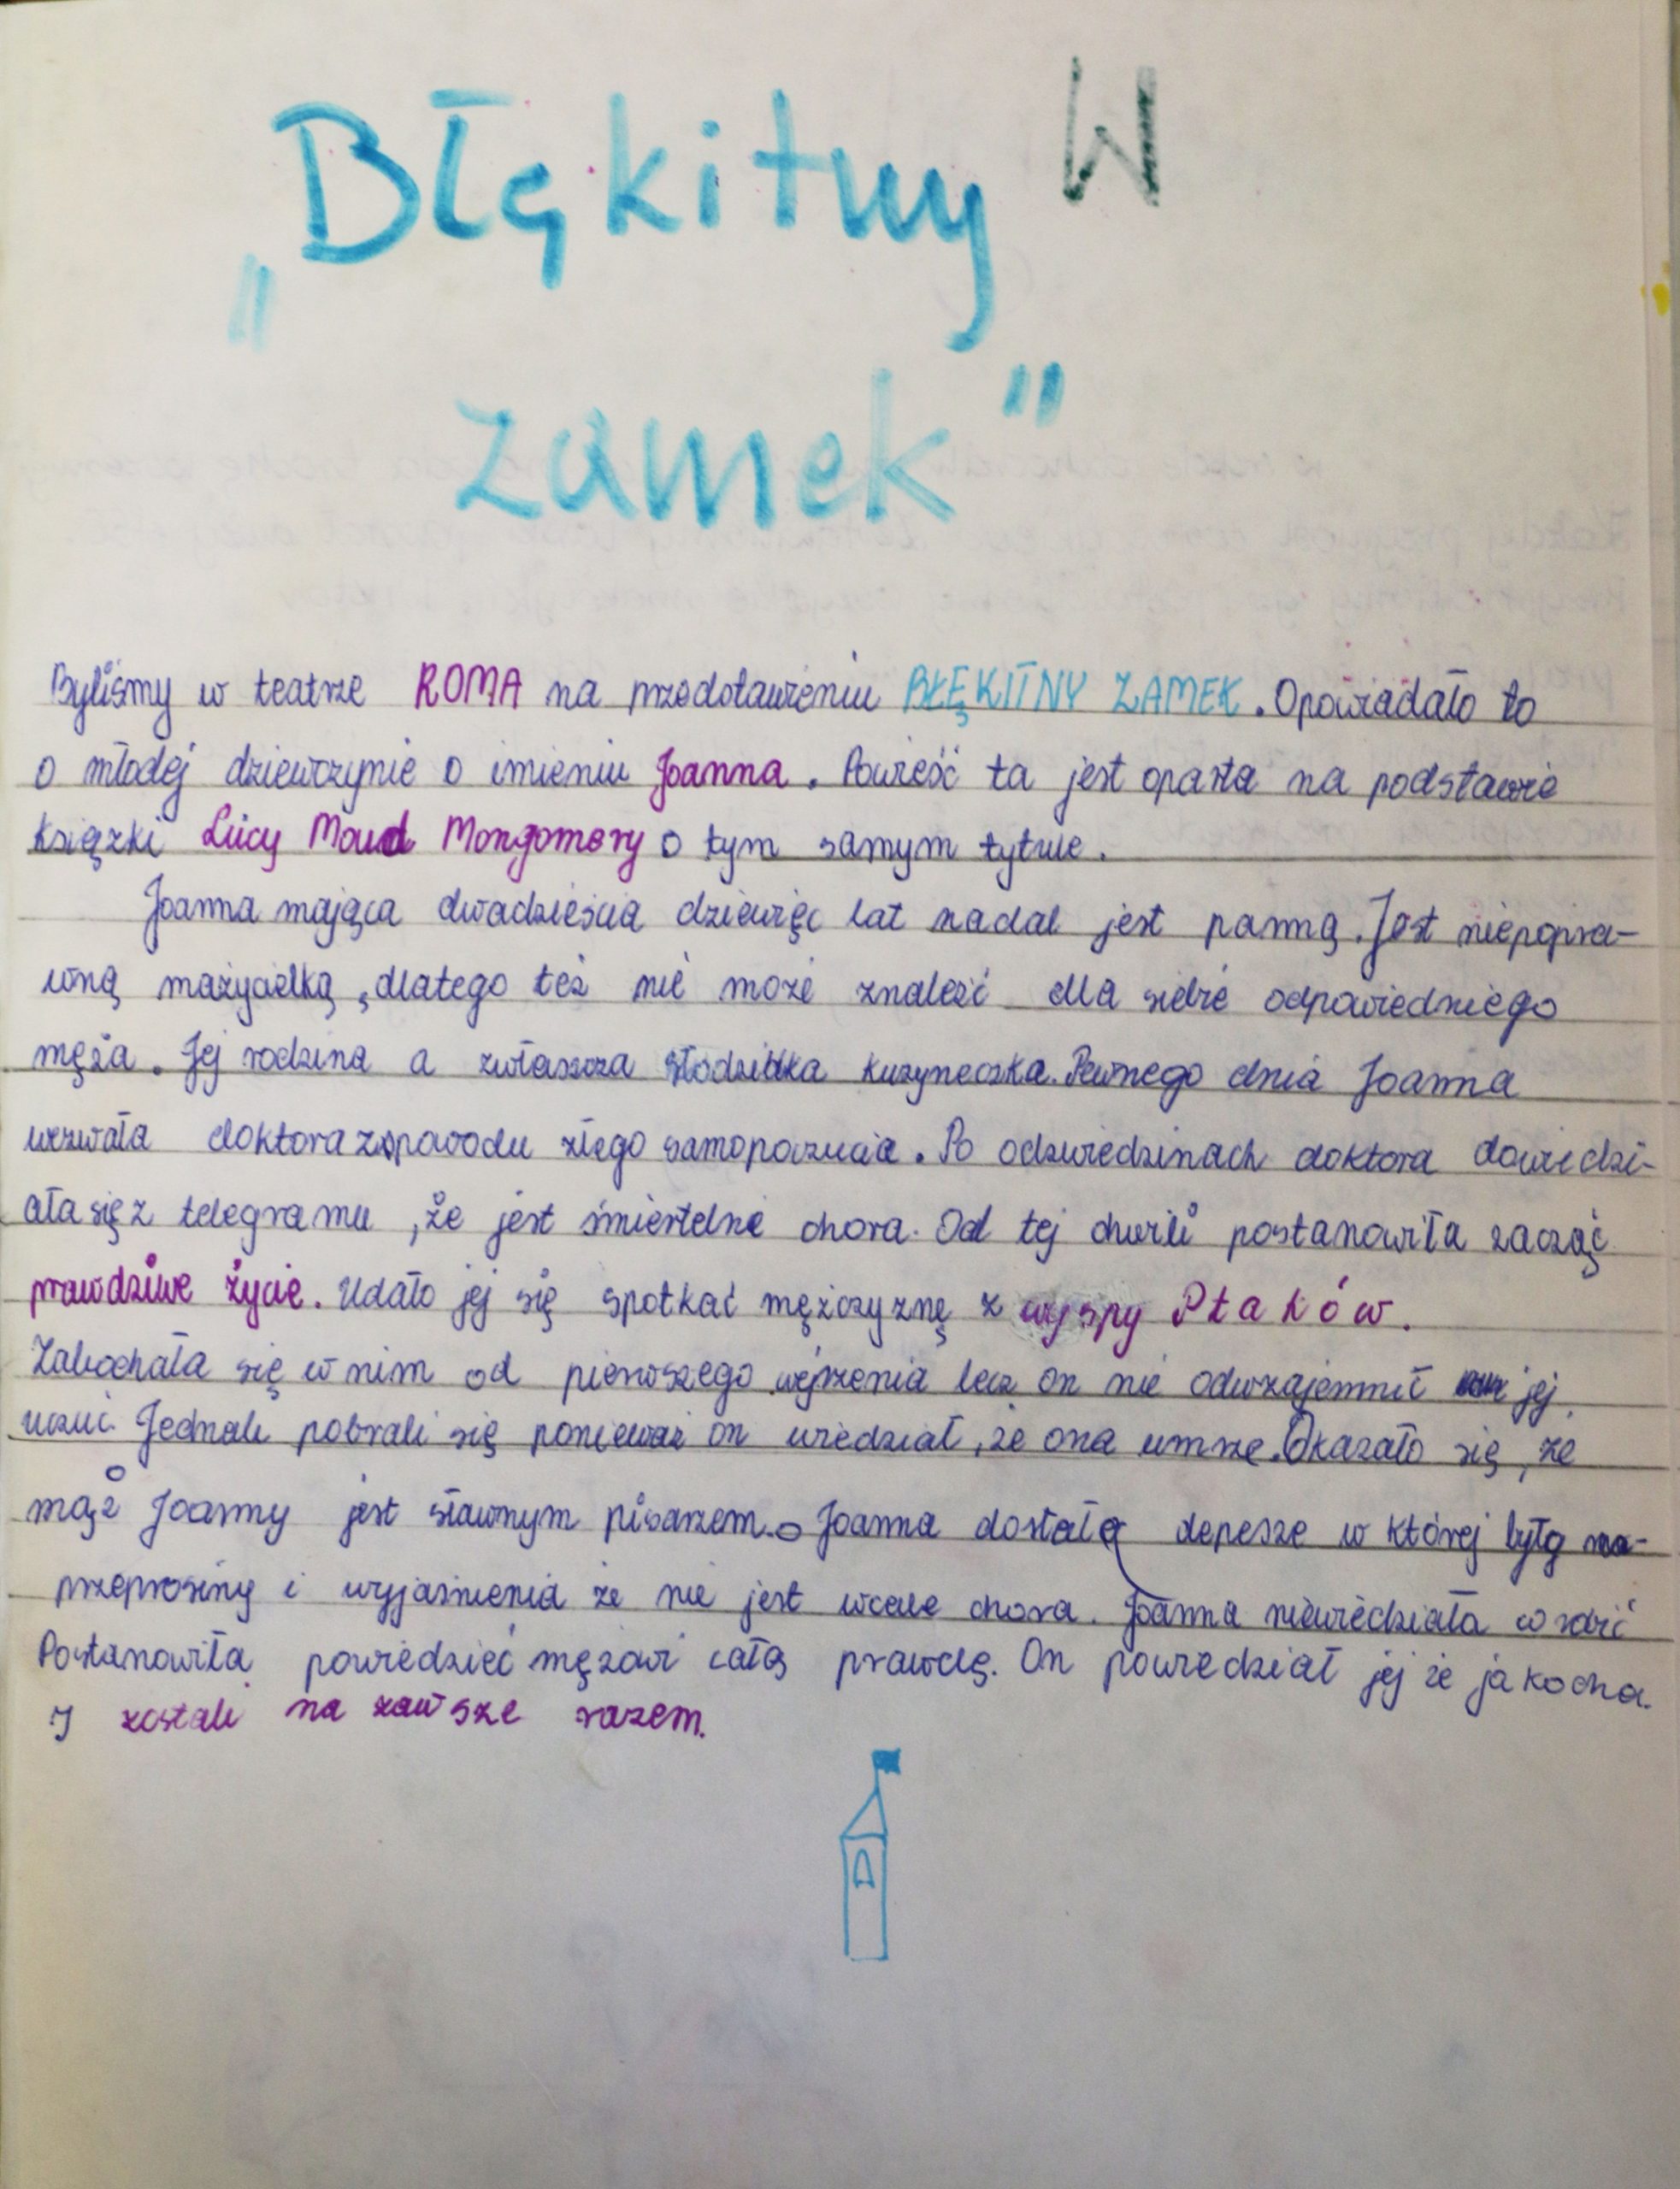 W
„Błękitny
zamek"
Byliśmy w teatrze ROMA na przedstawieniu BŁĘKITNY ZAMEK. Opowiadało to
o młodej dziewczynie o imieniu Joanna. Powieść ta jest oparta na podstawie
książki Lucy Moud Mongomery o tym samym tytule.
Joanna mająca dwadzieścia dziewięc lat nadal jest panną. Jest niepopra-
wną mażycielką, dlatego też nie może znaleźć dla siebie odpowiedniego
męża. Jej rodzina a zwłaszcza słodziutka kuzyneczka. Pewnego dnia Joanna
wezwała doktora z powodu złego samopoczucia. Po odzwiedzinach doktora dowiedzi-
ała się z telegramu, że jest śmiertelnie chora. Od tej chwili postanowiła zacząć
prawdziwe życie. Udało jej się spotkać mężczyznę z wyspy Ptaków.
Zakochała się w nim od pierwszego wejrzenia lecz on nie odwzajemnił jej
uczuć. Jednak pobrali się ponieważ on wiedział, że ona umrze. Okazało się, że
mąż Joanny jest sławnym pisarzem. Joanna dostała depesze w której były
przeprosiny i wyjaśnienia że nie jest wcale chora. Joanna niewiedziała co robić
Postanowiła powiedzieć mężowi całą prawdę. On powiedział jej że ja kocha.
I zostali na zawsze razem.